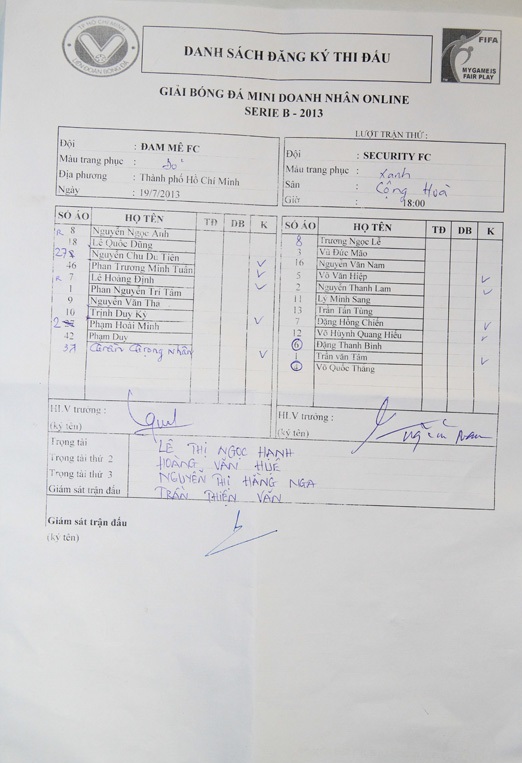 TP HỒ CHÍ MINH
LIÊN ĐOÀN BÓNG ĐÁ
DANH SÁCH ĐĂNG KÝ THI ĐẤU
FIFA
MY GAME IS
FAIR PLAY
GIẢI BÓNG ĐÁ MINI DOANH NHÂN ONLINE
SERIE B - 2013
LƯỢT TRẬN THỨ :
Đội : ĐAM MÊ FC
Màu trang phục : Đỏ
Địa phương : Thành phố Hồ Chí Minh
Ngày : 19/7/2013
Đội : SECURITY FC
Màu trang phục : Xanh
Sân : Cộng Hoà
Giờ : 18:00
SỐ ÁO HỌ TÊN TĐ DB K
R 8 Nguyễn Ngọc Anh
18 Lê Quốc Dũng
27 Nguyễn Chu Du Tiên
46 Phan Trương Minh Tuấn ✓
R 7 Lê Hoàng Định ✓
1 Phan Nguyễn Trí Tâm ✓
9 Nguyễn Văn Tha
10 Trịnh Duy Ký
2 Phạm Hoài Minh ✓
42 Phạm Duy
37 Trần Trọng Nhân ✓
SỐ ÁO HỌ TÊN TĐ DB K
8 Trương Ngọc Lễ
3 Vũ Đức Mão
16 Nguyễn Văn Nam
5 Võ Văn Hiệp ✓
2 Nguyễn Thanh Lam ✓
11 Lý Minh Sang
13 Trần Tấn Tùng
7 Đặng Hồng Chiến ✓
12 Võ Huỳnh Quang Hiếu ✓
6 Đặng Thanh Bình
1 Trần văn Tâm ✓
Võ Quốc Thắng
HLV trưởng :
(ký tên)
HLV trưởng :
(ký tên)
Trọng tài LÊ THỊ NGỌC HẠNH
Trọng tài thứ 2 HOÀNG VĂN HUÊ
Trọng tài thứ 3 NGUYỄN THỊ HẰNG NGA
Giám sát trận đấu TRẦN THIÊN VĂN
Giám sát trận đấu
(ký tên)